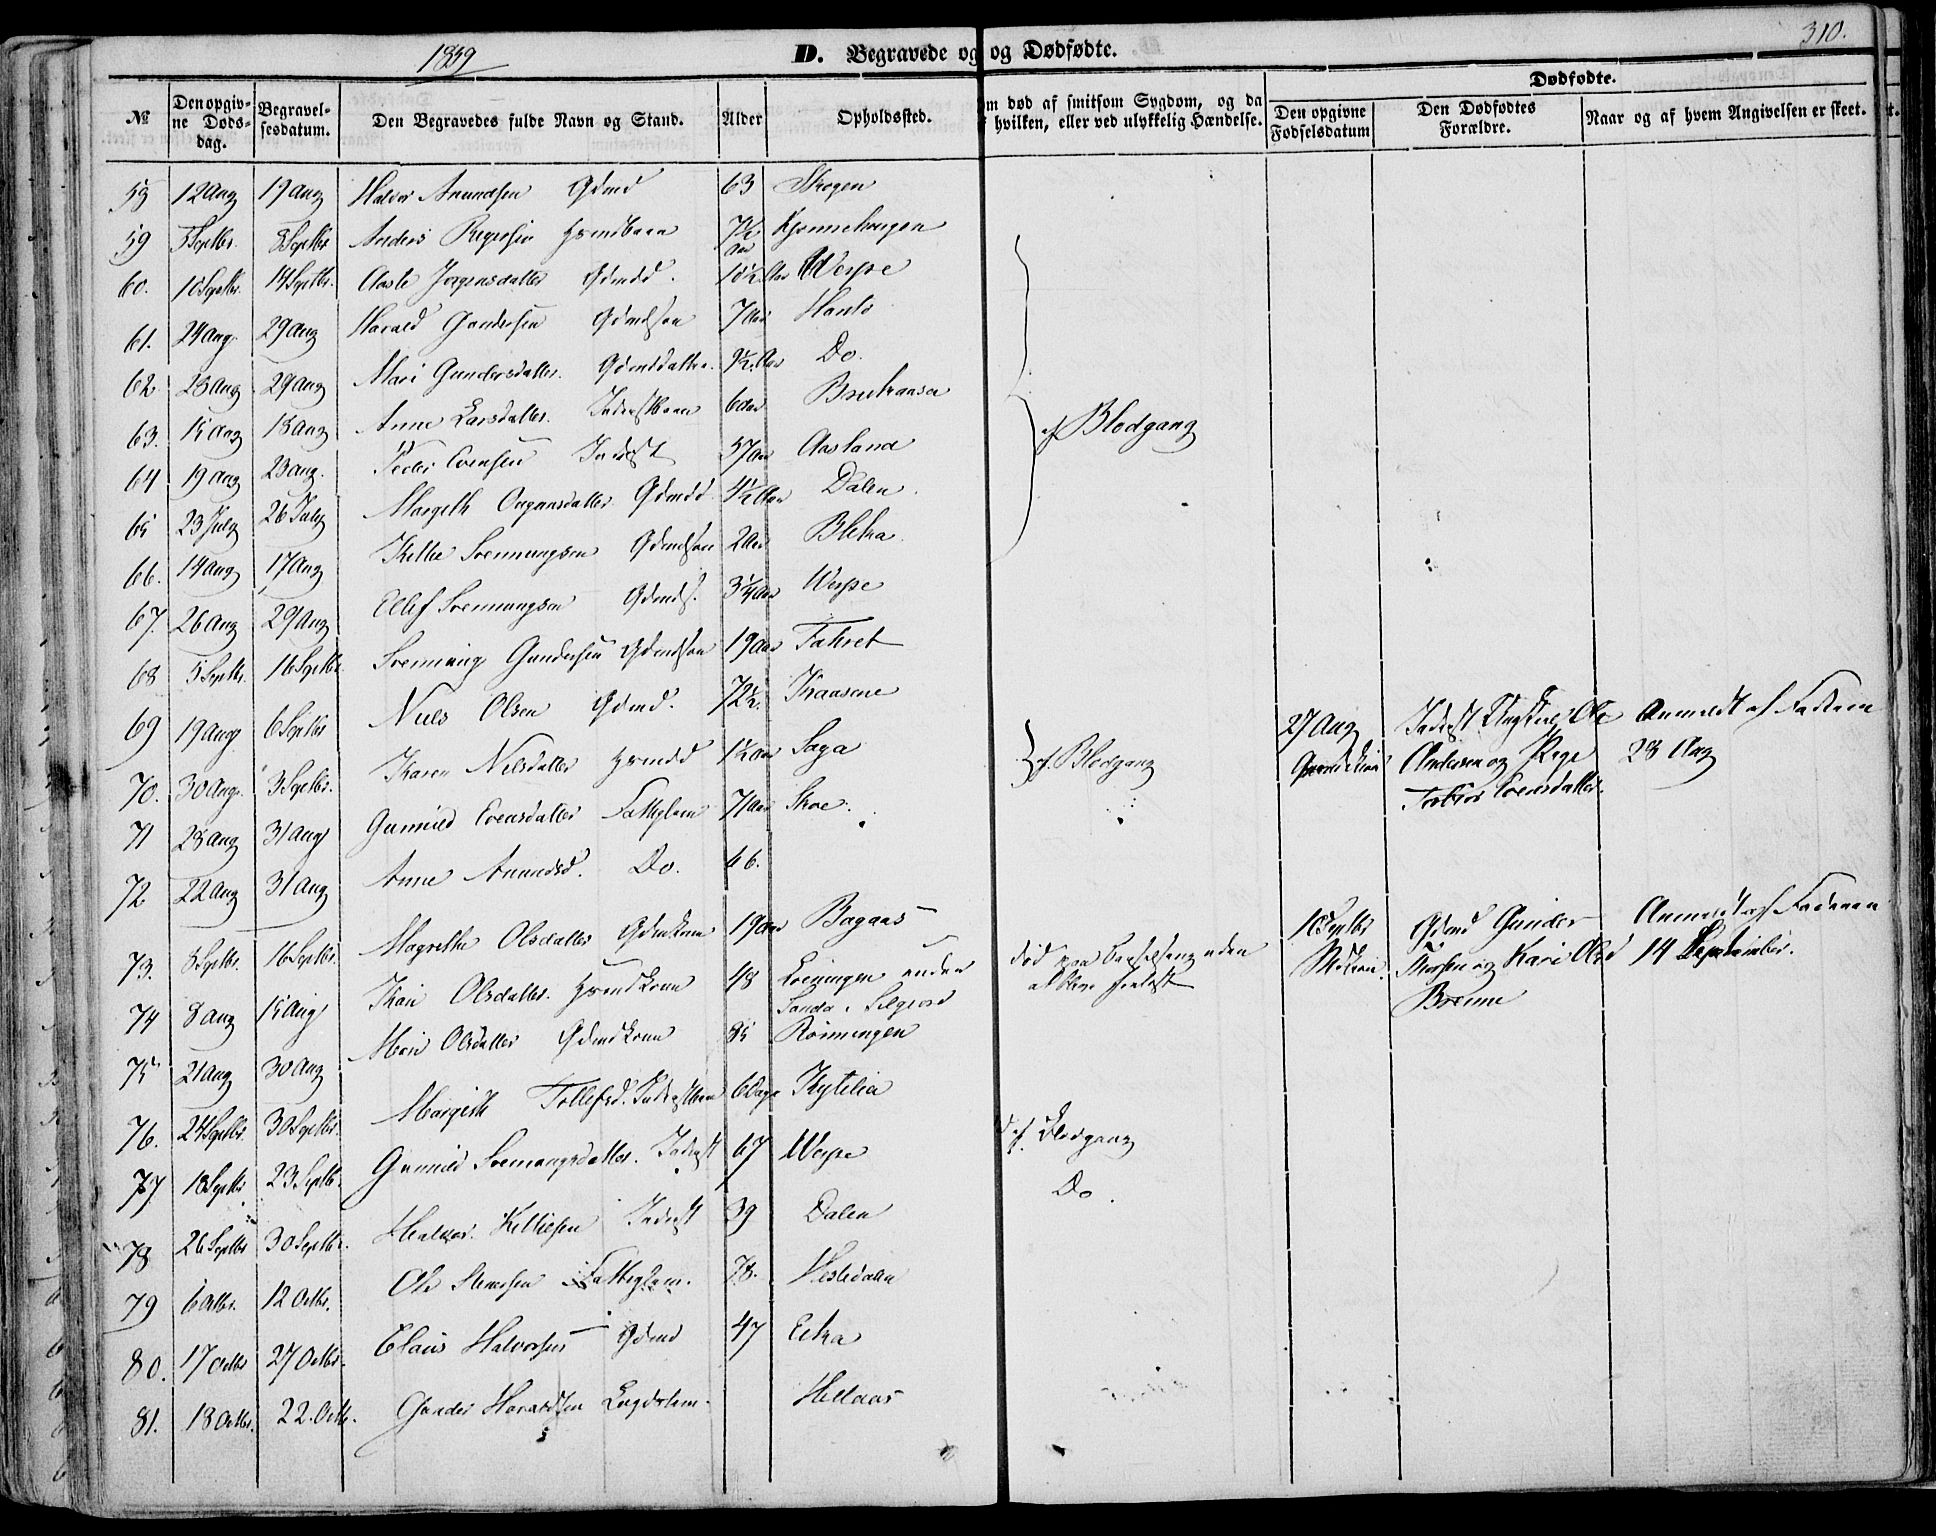 1859
D. Begravede og og Dødfødte.
310.
№
Den opgiv-
ne Døds-
dag.
Begravel-
sesdatum.
Den Begravedes fulde Navn og Stand.
Alder
Opholdssted.
om død af smitsom Sygdom, og da
f hvilken, eller ved ulykkelig Hændelse.
Dødfødte.
Den opgivne
Fødselsdatum
Den Dødfødtes
Forældre.
Naar og af hvem Angivelsen er skeet.
12 Aug 17 Aug Halvor Anundsen Gdmd 63 Skogen
59 5 Septbr. 8 Septbr Anders 7½ Aar
60. 10 Septbr. 14 Septbr. Aaste Jørgensdatter Gdmdd. 10½ Aar Werpe
61. 24 Aug 29 Aug Harald Gundersen Gdmdsøn 7 Aar Hanto
62 23 Aug 29 Aug Mari Gundersdatter Gdmddatter 9½ Aar Do.
63. 15 Aug 18 Aug Anne Larsdatter. Inderstbarn 6 Aar
af Blodgang
64 19 Aug 23 Aug. Peder Evensen Inderst 57 Aar Aasland
65 23 July 26 July Margith Gdmdd 4½ Aar Dalen
66. 14 Aug 17 Aug Kittil Svenningsen Gdmdsøn 2 Aar Bleka
67. 26 Aug 29 Aug Ellef Svenningsen Gdmds. 3¼ Aar Werpe
68 5 Septbr. 16 Septbr Svennung Gundersen Gdmdsøn 19 Aar Takset
69 19 Aug 6 Septbr Niels Olsen Gdmd. 72½. Kaasene
27 Aug Inderst Ole Anmeldt af Faderen
70. 30 Aug. 3 Septbr. Karen Nilsdatter Hsmdd 1½ Aar Saga
af Blodgang
Andersen og 28 Aug
Evensdatter
71 28 Aug 31 Aug Gunnild Evensdatter Fattiglem 71 Aar Skoe.
72 22 Aug 31 Aug Anne Anundsd. Do. 66.
73. 8 Septbr. 16 Septbr. Magrethe Olsdatter Gdmkone 19 Aar Bagaas
10 Septbr Gdmd Gunder Anmeldt af Faderen
og Kari Olsd 14 September.
Brenne
74 8 Aug 15 Aug Kari Olsdatter. Hsmdkone 48 Løvingen under
Sanda i Selgjord
død paa Barselseng uden
at blive forløst
75 21 Aug 30 Aug Mari Olsdatter Gdmdkone 85 Rønningen
76. 24 Septbr. 30 Septbr. Margith Tollefsd. Inderstbarn 6 Dage Kytelia
77. 18 Septbr 23 Septbr. Gunnild Svenungsdatter. Inderst 67 Werpe
d. af Blodgang
78 26 Septbr 30 Septbr. Halvor Kittilsen Inderst 39 Dalen
Do.
79 6 Octbr. 12 Octbr. Ole Stenersen Fattiglem. 78. Hesledalen
80. 17 Octbr 27 Octbr. Claus Halvorsen Gdmd 47 Eika
81. 18 Octbr. 22. Octb. Gunder Haraldsen Lægdslem. Hellaas